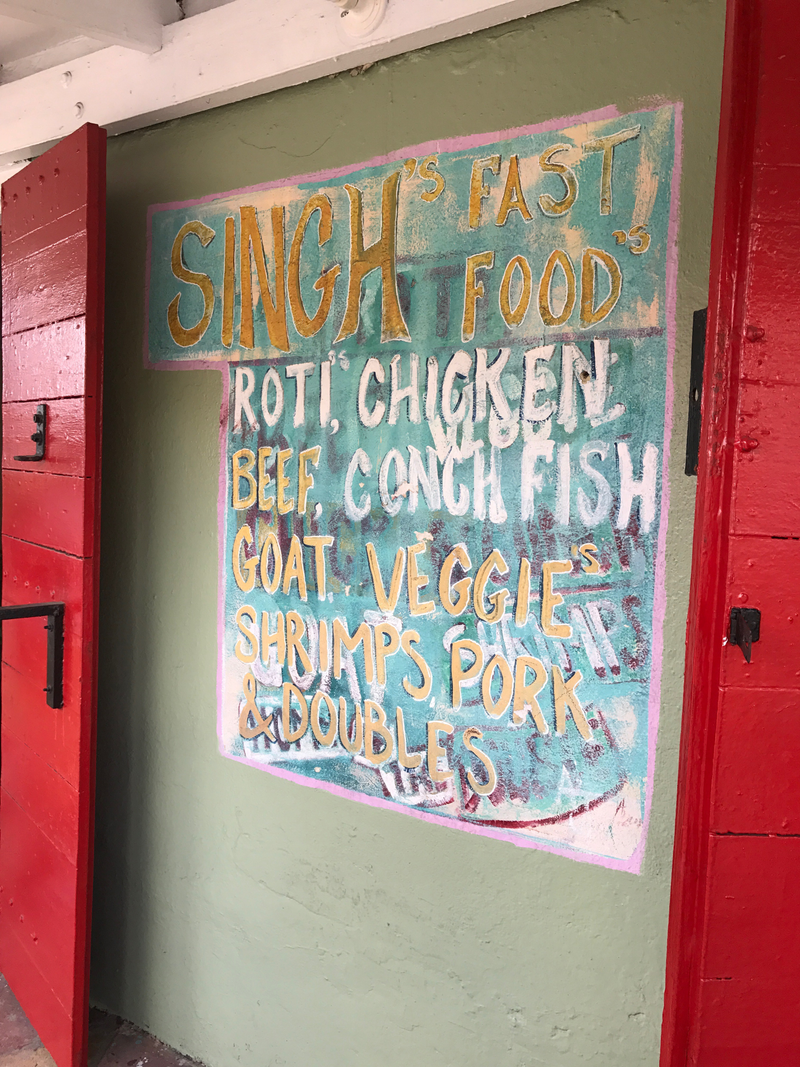 SINGH'S FAST
FOOD'S
ROTI'S, CHICKEN,
BEEF, CONCH FISH
GOAT VEGGIE'S
SHRIMPS, PORK
& DOUBLES